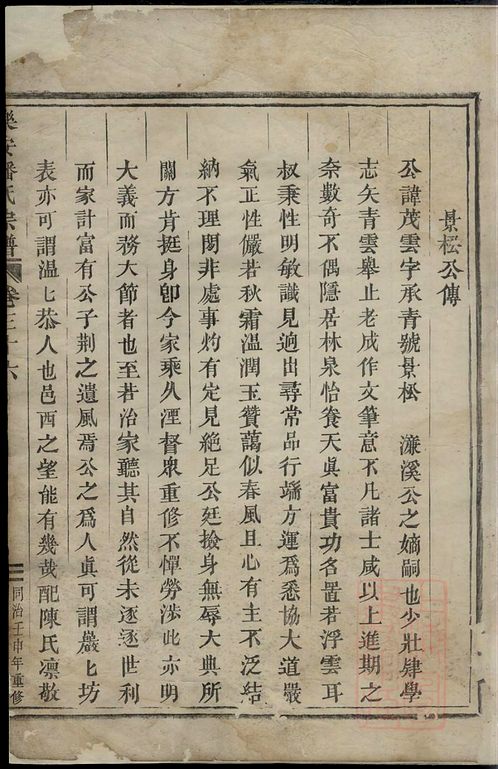 景松公傳
公諱茂雲字承青號景松 濂溪公之嫡嗣也少壯肄學
志矢青雲舉止老成作文筆意不凡諸士咸以上進期之
奈數奇不偶隱居林泉怡養天眞富貴功名置若浮雲耳
叔秉性明敏識見逈出尋常品行端方運爲悉協大道嚴
氣正性儼若秋霜溫潤玉贊藹似春風且心有主不泛結
納不理閒非處事灼有定見絕足公廷撿身無辱大典所
關方肯挺身卽今家乘久湮督衆重修不憚勞涉此亦明
大義而務大節者也至若治家聽其自然從未逐逐世利
而家計富有公子荆之遺風焉公之爲人眞可謂嚴匕坊
表亦可謂溫匕恭人也邑西之望能有幾哉配陳氏凛敬
樂安潘氏宗譜 卷三十六
同治壬申年重修